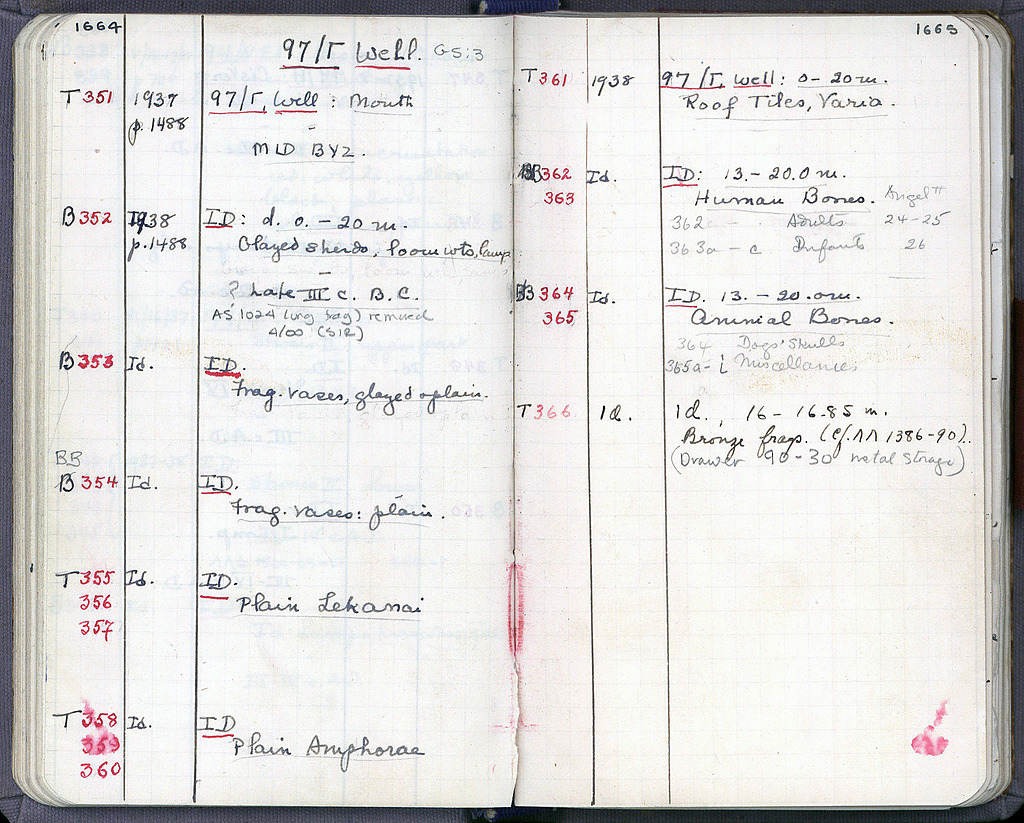 1664
97/Γ Well. GS:3
T 351 1937 97/Γ, Well : Mouth
p. 1488
MID BYZ.
B 352 1938 ID: d. 0. – 20 m.
p. 1488 Glazed sherds, loom wts, lamp
? Late III c. B.C.
AS 1024 (ung frag) removed
4/00 (S12)
B 353 Id. ID.
Frag. vases, glazed & plain.
BB
B 354 Id. ID.
Frag. vases: plain.
T 355 Id. ID.
356 Plain Lekanai
357
T 358 Id. ID
359 Plain Amphorae
360
1665
T 361 1938 97/Γ, Well: 0 – 20 m.
Roof Tiles, Varia.
BB 362 Id. ID: 13. – 20.0 m.
363 Human Bones. Angel #
362a – Adults 24-25
363a – c Infants 26
BB 364 Id. ID. 13. – 20.0 m.
365 Animal Bones.
364 Dogs' Skulls
365a-i Miscellaneous
T 366. Id. Id., 16 – 16.85 m.
Bronze frags. (Cf. ΛΛ 1386-90).
(Drawer 90-30 metal Storage)